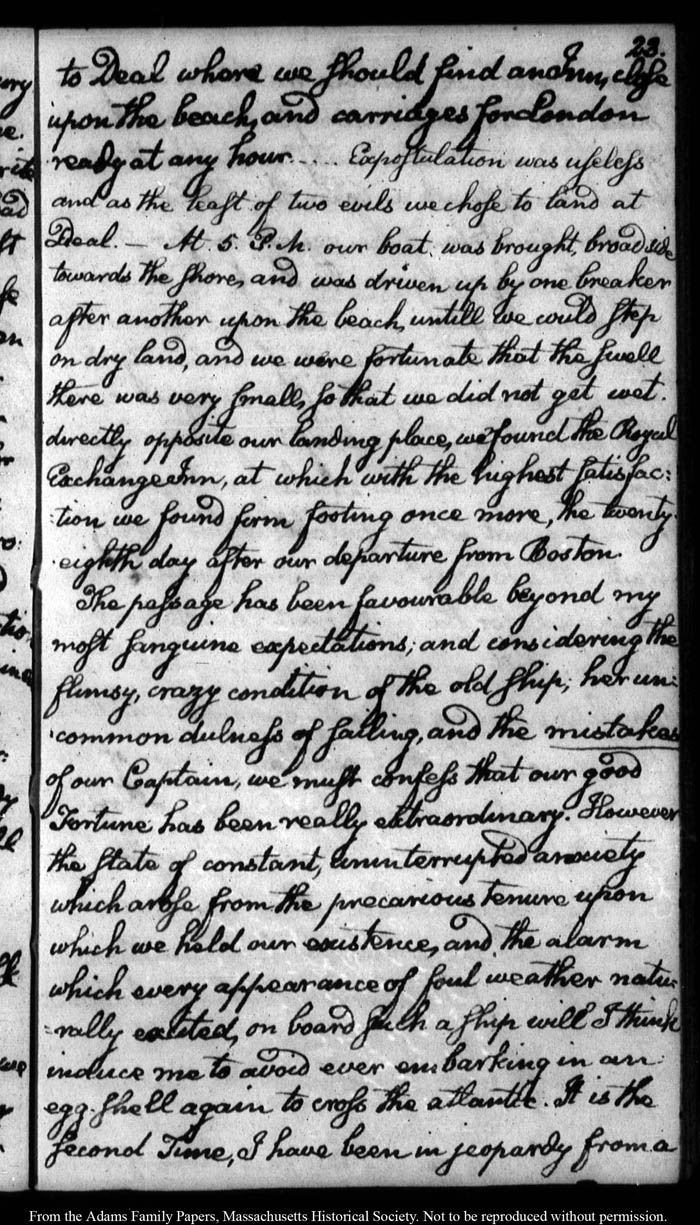 23.
to Deal where we should find an Inn, close
upon the beach, and carriages for London
ready at any hour.... Expostulation was useless
and as the least of two evils we chose to land at
Deal. — At. 5. P.M. our boat, was brought, broad side
towards the shore, and was driven up by one breaker
after another upon the beach, untill we could step
on dry land, and we were fortunate that the swell
there was very small, so that we did not get wet.
directly opposite our landing place, we found the Royal
Exchange Inn, at which with the highest satisfac:
:tion we found firm footing once more, the twenty
eighth day after our departure from Boston.
The passage has been favourable beyond my
most sanguine expectations; and considering the
flimsy, crazy condition of the old ship; her un:
:common dulness of sailing, and the mistakes
of our Captain, we must confess that our good
Fortune has been really extraordinary. However
the state of constant, uninterrupted anxiety
which arose from the precarious tenure upon
which we held our existence, and the alarm
which every appearance of foul weather natu:
:rally excited, on board such a ship will I think
induce me to avoid ever embarking in an
egg-shell again to cross the atlantic. It is the
second Time, I have been in jeopardy from a
From the Adams Family Papers, Massachusetts Historical Society. Not to be reproduced without permission.